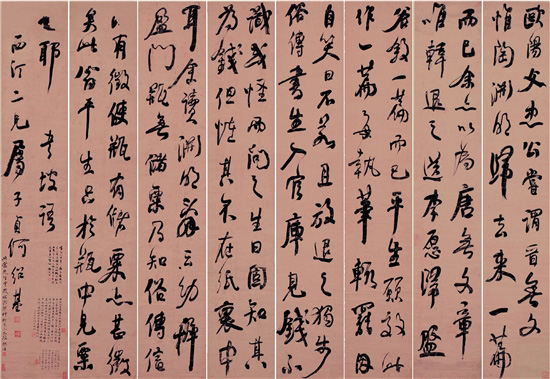 歐陽文忠公嘗言晉無文
惟陶淵明歸去來一篇
而已余亦以為唐無文章
唯韓退之送李愿歸盤
谷敘一篇而已平生願效此
作一篇每執筆輒罷因
自笑曰不若且放退之獨步
俗傳書生入官庫見錢不
識或怪而問之生曰固知其
為錢但怪其不在紙裹中
耳余讀淵明辭云幼稚
盈門瓶無儲粟乃知俗傳信
而有徵使瓶有儲粟亦甚微
矣此翁平生只於瓶中見粟
也耶 書坡語
西汀二兄屬 子貞何紹基